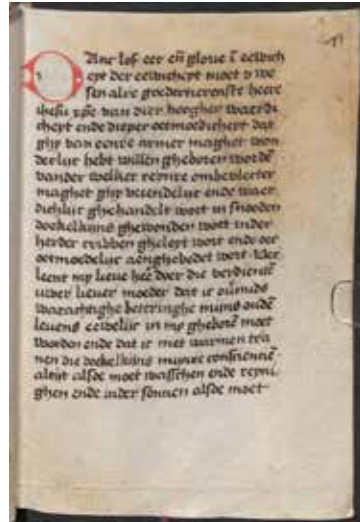 Danc lof eer eñ glorie ī eewich
eyt der eewicheyt moet v we
sen alre goedertierenste heere
ihesu xp̄e van dier hoegher waerdi
cheyt ende dieper oetmoedicheyt dat
ghy van eenre armer maghet won
derlic hebt willen gheboren wordē
vander welker reynre ombevlecter
maghet ghy verendelic ende waer
dichlic ghehandelt wort in snoeden
doekelkijns ghewonden wort inder
herder cribben gheleyt wort ende oec
oetmoedelic aenghebedet wort
leent my lieue heē doer die verdienē
uwer liever moeder dat ic
warachtighe beteringhe mijns
levens eewelic in my gheborē moet
worden ende dat ic met warmen tra
nen die doekelkijns mijnre consciencē
altijt alsoe moet wasschen ende reyni
ghen ende inder sonnen alsoe moet